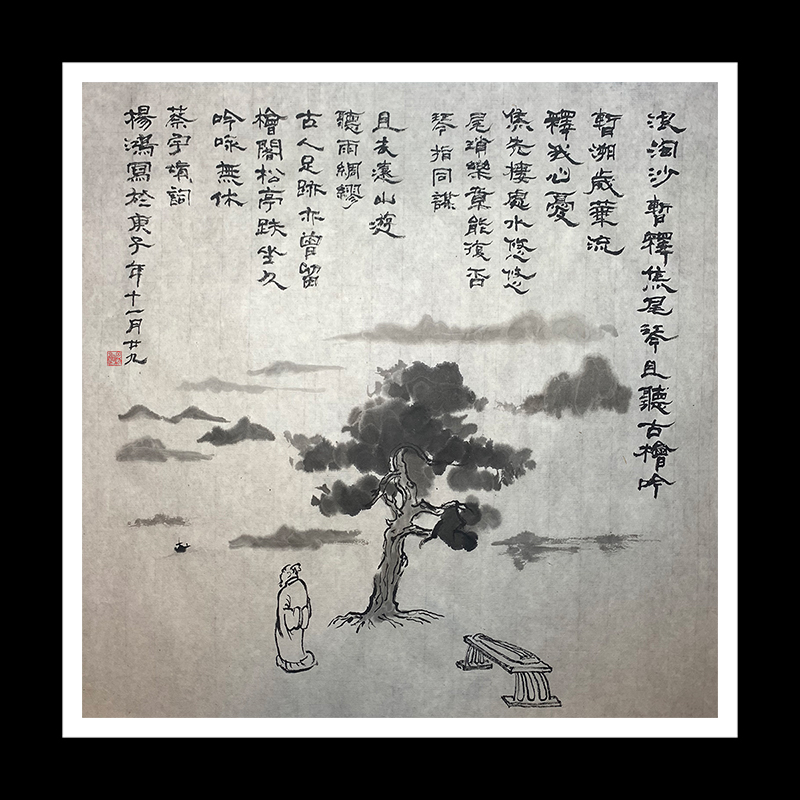 浪淘沙暫釋焦尾琴且聽古檜吟
暫溯歲華流
釋我心憂
焦先棲處水悠悠
尾瑣樂章能復否
琴指同謀
且去瀼山遊
聽雨綢繆
古人足跡亦曾留
檜閣松亭趺坐久
吟咏無休
蔡宇填詞
楊鴻寫於庚子年十一月廿九